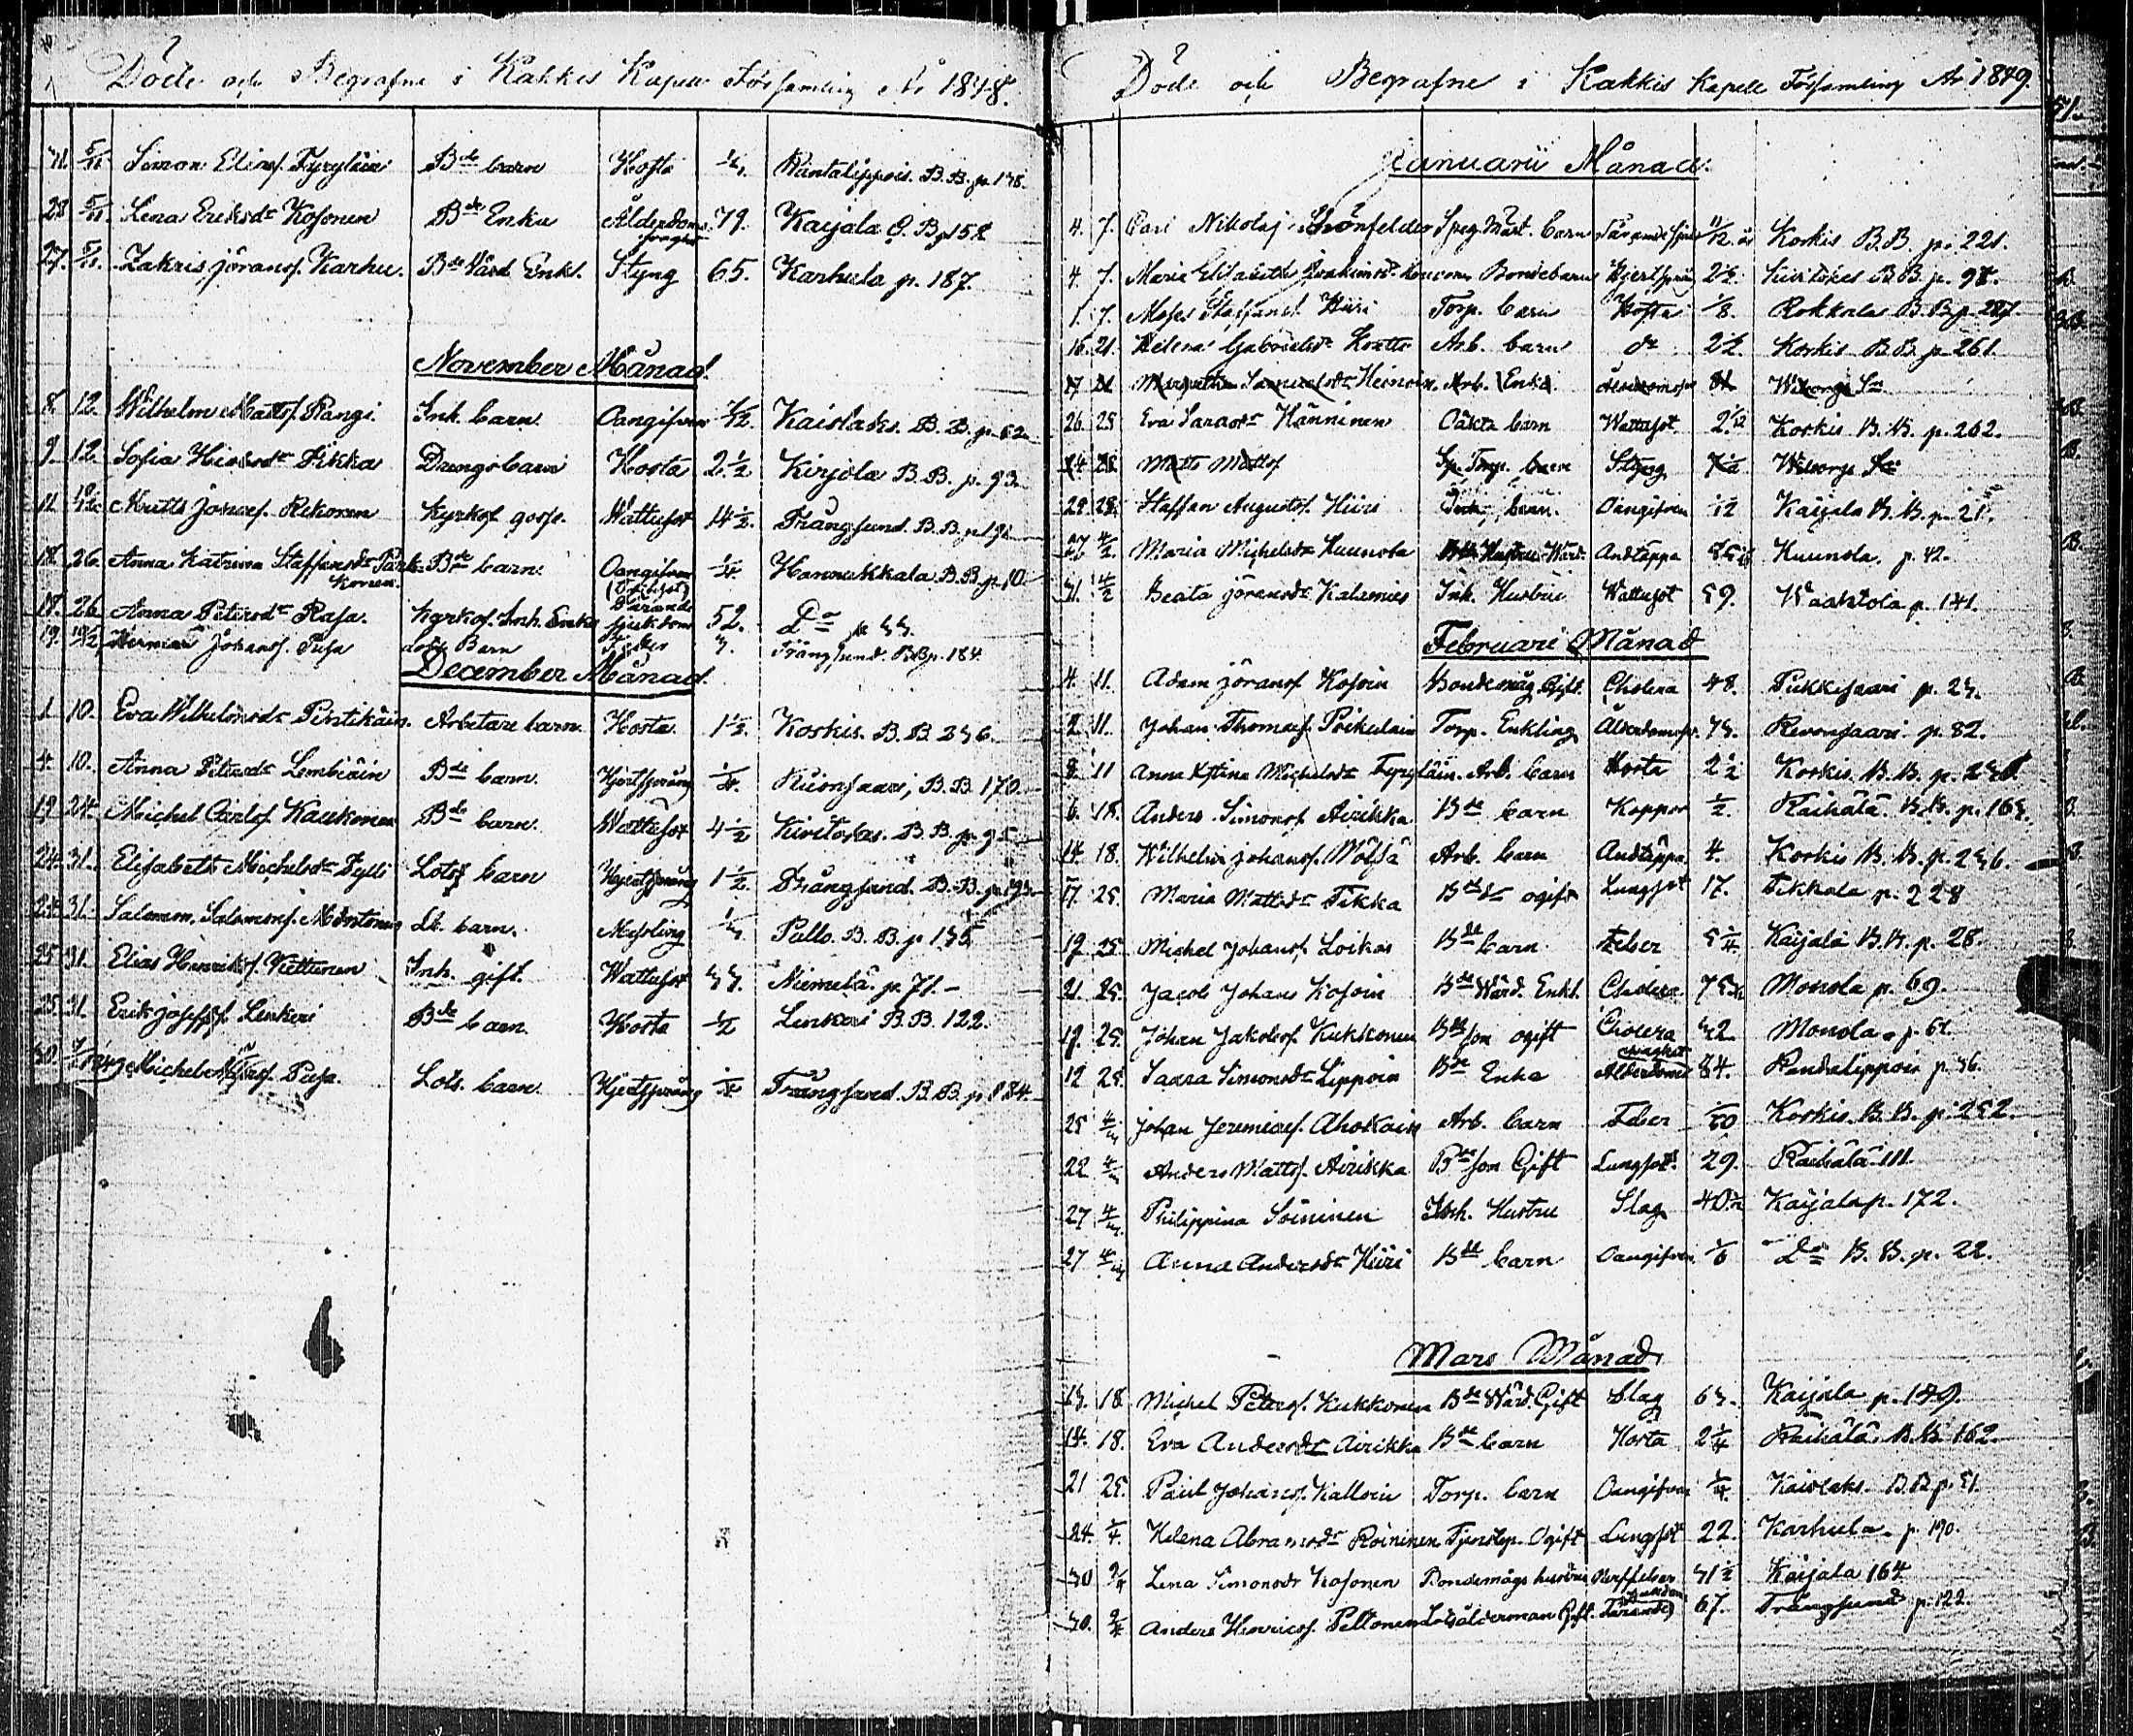 Döde och Begrafne i Kakkis Kapell Församling År 1848.
31. 5/11 Simon Eliasf. Tyryläin Bde barn Hosta Rantalippois. B.B. p. 138.
28 5/11 Lena Eriksdr Kosonen Bde Enka Ålderdoms 79. Kaijala p. 152
27. 5/11 Zakris Göransf. Karhu. Bde Värd Enkl. Styng 65. Karhula p. 187.
November Månad.
8. 12. Wilhelm Mattsf. Rangi. Inh. barn Oangifven Kaislaks. B.B. p. 62
9. 12. Sofia Tikka Drengs barn Hosta 2 1/2 Kirjola B.B. p. 93.
11 Matts Rekonen Kyrkof. gosse. Wattusot 14 1/2 Trångsund. B.B. p.
18. 26. Anna Katrina Staffansdr Park- Bde barn. Oangifven 1/4 Hannukkala B.B. p. 10.
konen
18. 26 Anna Petersdr Pusa. Kyrkof. Inh. Enka Tärande sjukdom 52. Do p. 33.
19. Herman Johansf. Pusa Lots Barn Feber 3. Trångsund. B.B. p. 184
December Månad.
1. 10. Eva Wilhelmsdr Pirttikäin. Arbetare barn. Hosta. 1 1/2. Korkis. B.B. 236.
4. 10. Anna Petersdr Lembiäin Bde barn. Hjertsprång 1/4. Riionsaari, B.B. 170.
19 24. Michel Carlsf. Kaukonen Bde barn. Wattusot 4 1/2 Kivitokes. B.B. p. 95
24. 31. Elisabeth Michelsdr Tylli Lots barn Hjertsprång 1 1/2. Trångsund. B.B. p. 193.
24. 31. Salomon Salomonsf. Mönttönen Db. barn. Messling Pallo. B.B. p 135
25 31. Elias Henriksf. Viettunen Inh. gift. Wattusot 33. Niemelä. p. 71.-
25. 31. Erik Josephsf. Lenkeri Bde barn. Hosta 1/2 Linkeri B.B. 122.
30. Michel Pusa. Lots. barn. Hjertsprång 1/4 Trångsund. B.B. p 184.
Döde och Begrafne i Kakkis Kapell Församling År 1849.
Januarii Månad.
4. 7. Carl Nikolaj Grönfelder barn Tärande sjuk 11/12 år Korkis B.B. p. 221.
4. 7. Maria Elisabeth Joakimsdr Bondebarn Hjertsprång 2 1/2. Kiviitokes B.B. p. 98.
1. 7. Moses Staffansf. Hiiri Torp. barn Hosta 1/8. Rokkala B.B. p. 287.
16. 21. Helena Gabrielsdr Arb. barn do 2 1/2. Korkis B.B. p. 261.
17 21 Margaretha Samuelsdr Heinoin. Arb. Enka. 81 Wiborgs Sn
26. 28 Eva Hänninen Oäkta barn Wattusot. 2 1/12 Korkis. B.B. p. 262.
24 28 Matts Mattsf Torp. barn Styng 7 1/2 Wiborgs Sn
28. 28. Staffan Augustsf. Hiiri Inh. barn. Oangifven 1/12 Kaijala B.B. p. 21.
27 4/2. Maria Michelsdr Kuunola Andtäppa Kuunola. p. 42.
31. 4/2 Beata Göransdr Kalamies Inh. Hustru Wattusot 59. Waahtola p. 141.
Februarii Månad
4. 11. Adam Göransf. Kosoin Bondemåg Gift. Cholera 48. Pukkisaari p. 23.
2. 11. Johan Thomasf. Poikelain Torp. Enkling Ålderdomssv. 73. Revonsaari. p. 82.
8. 11 Anna Kristina Michelsdr Tyryläin. Arb. barn Hosta 2 1/2 Korkis. B.B. p.
6. 18. Anders Simonsf. Airikka Bde barn Koppor 1/2. Räihälä. B.B. p. 163.
14. 18. Wilhelm Johansf. Mölsä Arb. barn Andtäppa 4. Korkis B.B. p. 236.
17. 25. Maria Mattsdr Tikka Bde dr ogift Lungsot 17. Tikkala p. 228
19. 25 Michel Johansf. Loikas Bde barn. Feber 5 1/4 Kaijala B.B. p. 28.
21. 25. Jacob Johans Kosoin Bde Wärd. Enkl. Cholera Monola p. 69.
17. 25. Johan Jakobsf. Kukkonen Bde son ogift Cholera 32. Monola. p. 61.
12 25. Saara Simonsdr Lippoin Bde Enka Ålderdoms svaghet 84. Randalippois p. 56.
25 4/3 Johan Jeremiasf. Ahokain Arb. barn Feber Korkis. B.B. p. 252.
22 4/3 Anders Mattsf. Airikka Bde son Gift Lungsot. 29. Räihälä. 111.
27 4/3 Philippina Soininen Inh. Hustru Slag 40 1/2 Kaijala p. 172.
27 4/3 Anna Andersdr Hiiri Bde barn Oangifven 1/6 Do B.B. p. 22.
Mars Månad.
13. 18. Michel Petersf. Kukkonen Bde Wärd. Gift Slag 63. Kaijala p. 149.
14. 18. Eva Andersdr Airikka Bde barn Hosta 2 1/4 Räihälä. B.B. 162.
21 25. Paul Johansf. Kalloin Torp. barn Oangifven 1/4. Kaislaks. B.B. p. 51.
24. 1/4. Helena Abramsdr Roininen Tjenstep. Ogift Lungsot 22. Karhula. p. 190.
30 9/4 Lena Simonsdr Kosonen Bondemågs hustru 31 1/2 Kaijala 164
30. 9/4 Anders Henricsf. Peltonen Lotsålderman Gift. Tärande 67. Trångsund p. 122.